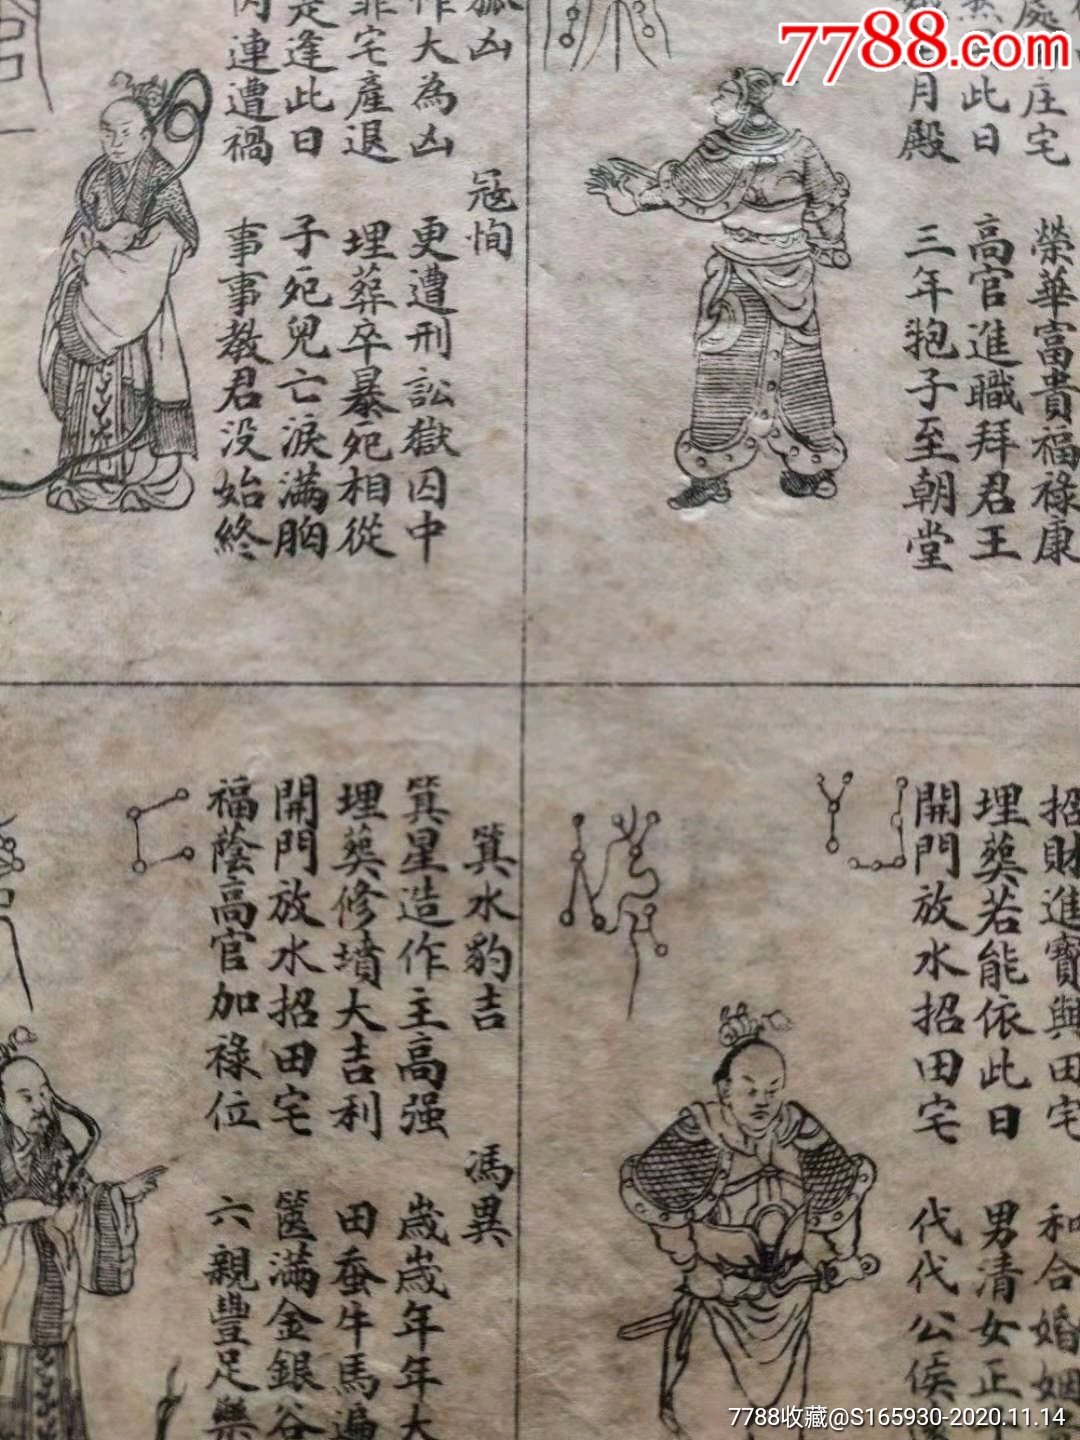 7788.com
處
庄宅
榮華富貴福祿康
此日
高官進職拜君王
月殿
三年抱子至朝堂
狐凶
寇恂
作大為凶
更遭刑訟獄囚中
宅產退
埋葬卒暴死相從
是逢此日
子死兒亡淚滿胸
連遭禍
事事教君没始終
招財進寶與田宅
和合婚姻
埋𦵏若能依此日
男清女正
開門放水招田宅
代代公侯
箕水豹吉
馮異
箕星造作主高强
歲歲年年大
埋𦵏修墳大吉利
田蚕牛馬遍
開門放水招田宅
篋滿金銀谷
福蔭高官加祿位
六親豐足樂
7788收藏@S165930-2020.11.14